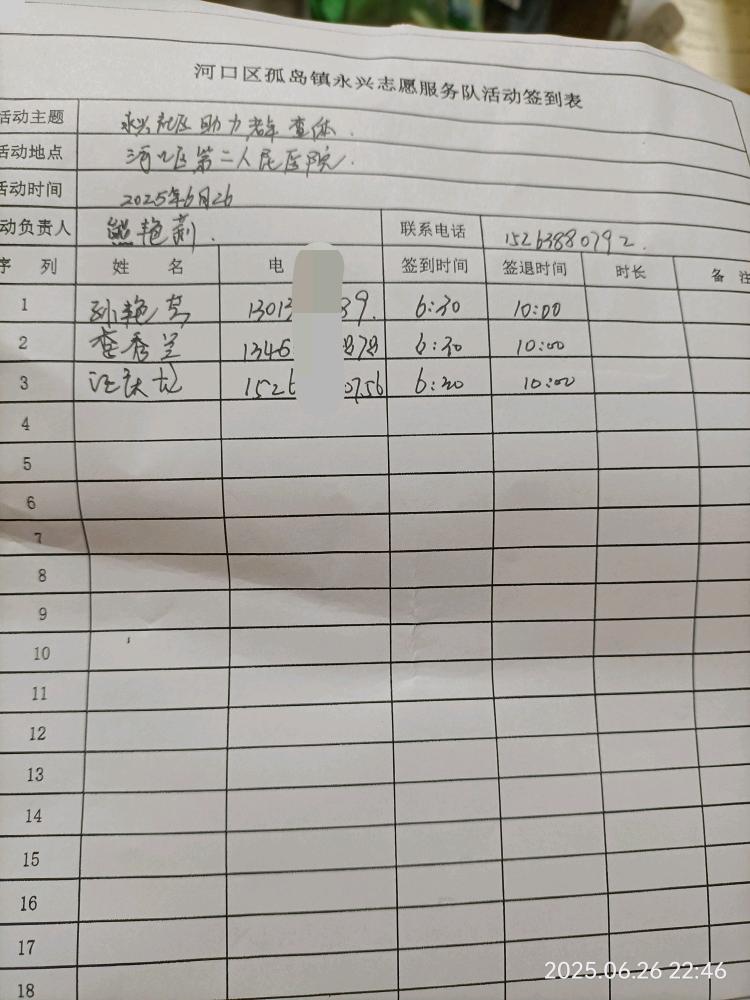 河口区孤岛镇永兴志愿服务队活动签到表
活动主题 永兴社区助力老年查体.
活动地点 河口区第二人民医院.
活动时间 2025年6月26
动负责人 熊艳莉. 联系电话 15263880792.
序 列 姓 名 电 签到时间 签退时间 时长 备 注
1 孙艳 1301 39. 6:30 10:00
2 秀兰 1346 878 6:30 10:00
3 汪 1526 0756 6:30 10:00
4
5
6
7
8
9
10
11
12
13
14
15
16
17
18
2025.06.26 22:46